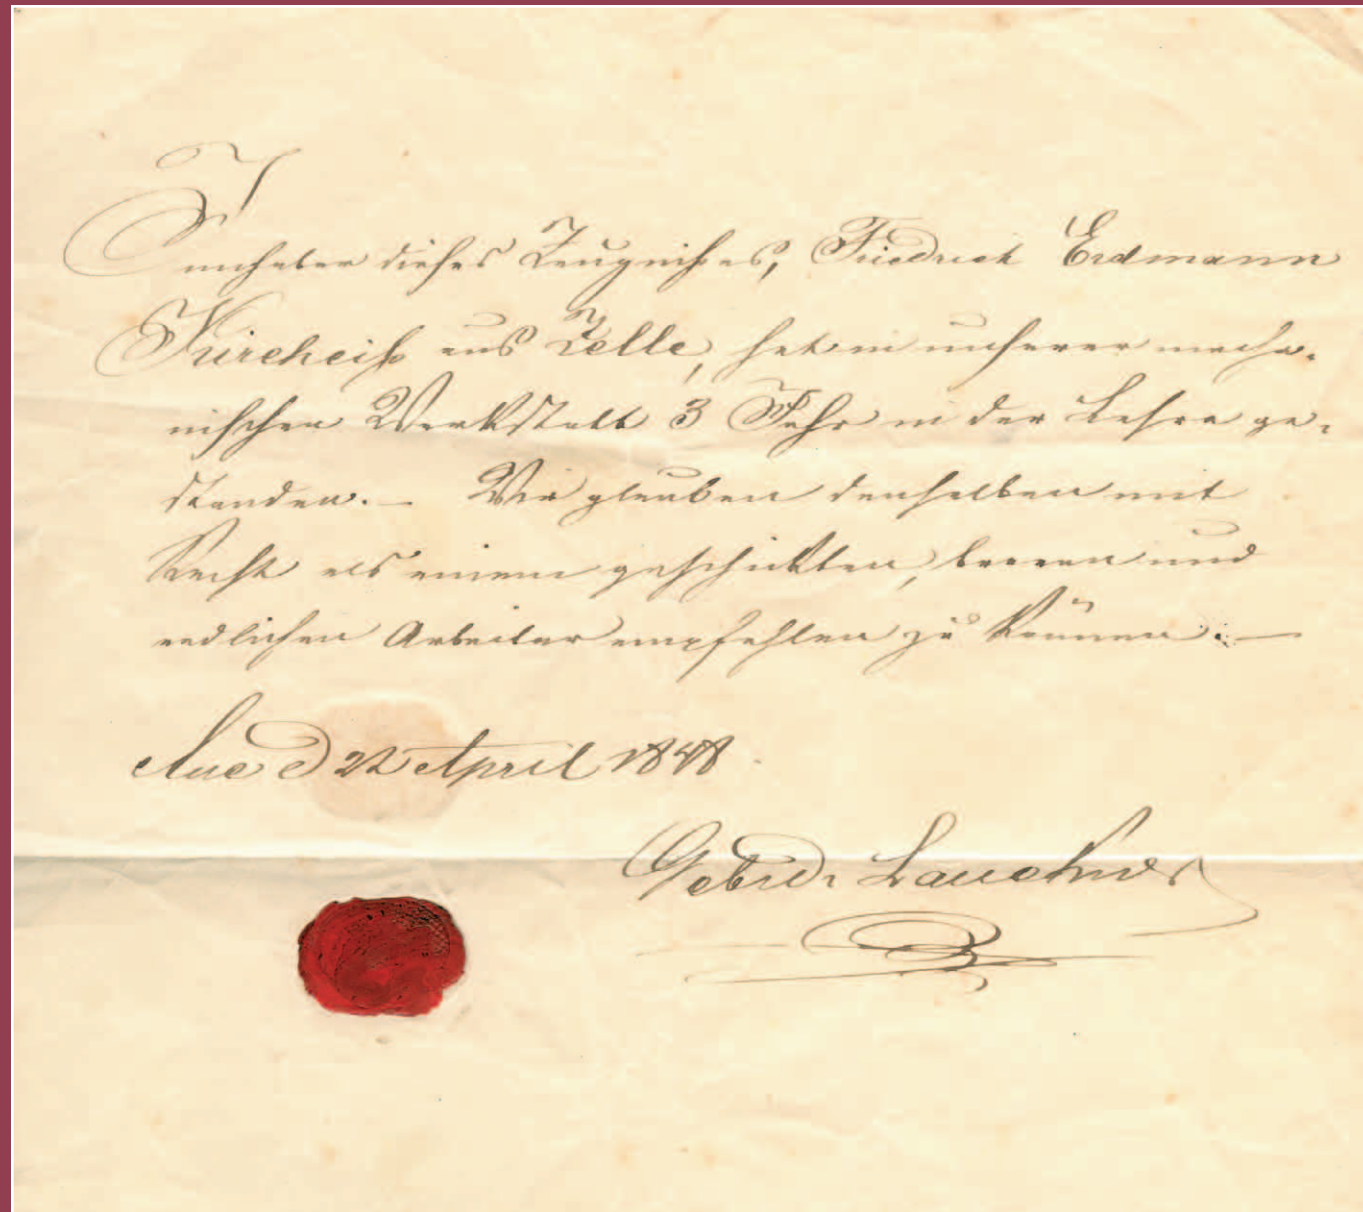 Innhaber dieses Zeugnißes, Friedrich Erdmann
Kircheiß aus Zelle, hat in unserer mecha-
nischen Werkstatt 3 Jahr in der Lehre ge-
standen. — Wir glauben denselben mit
Recht als einem geschickten, braven und
redlichen Arbeiter empfehlen zu können. —
Aue d 22 April 1848
Gebrdr